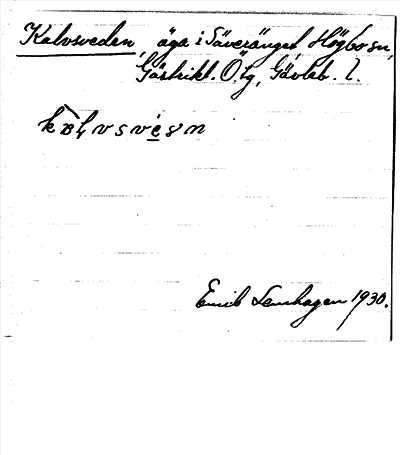 Kalvsveden, äga i Säveränget, Högbo sn,
Gästrikl. Ö. tg, Gävleb. l.
Emil Lenhagen 1930.